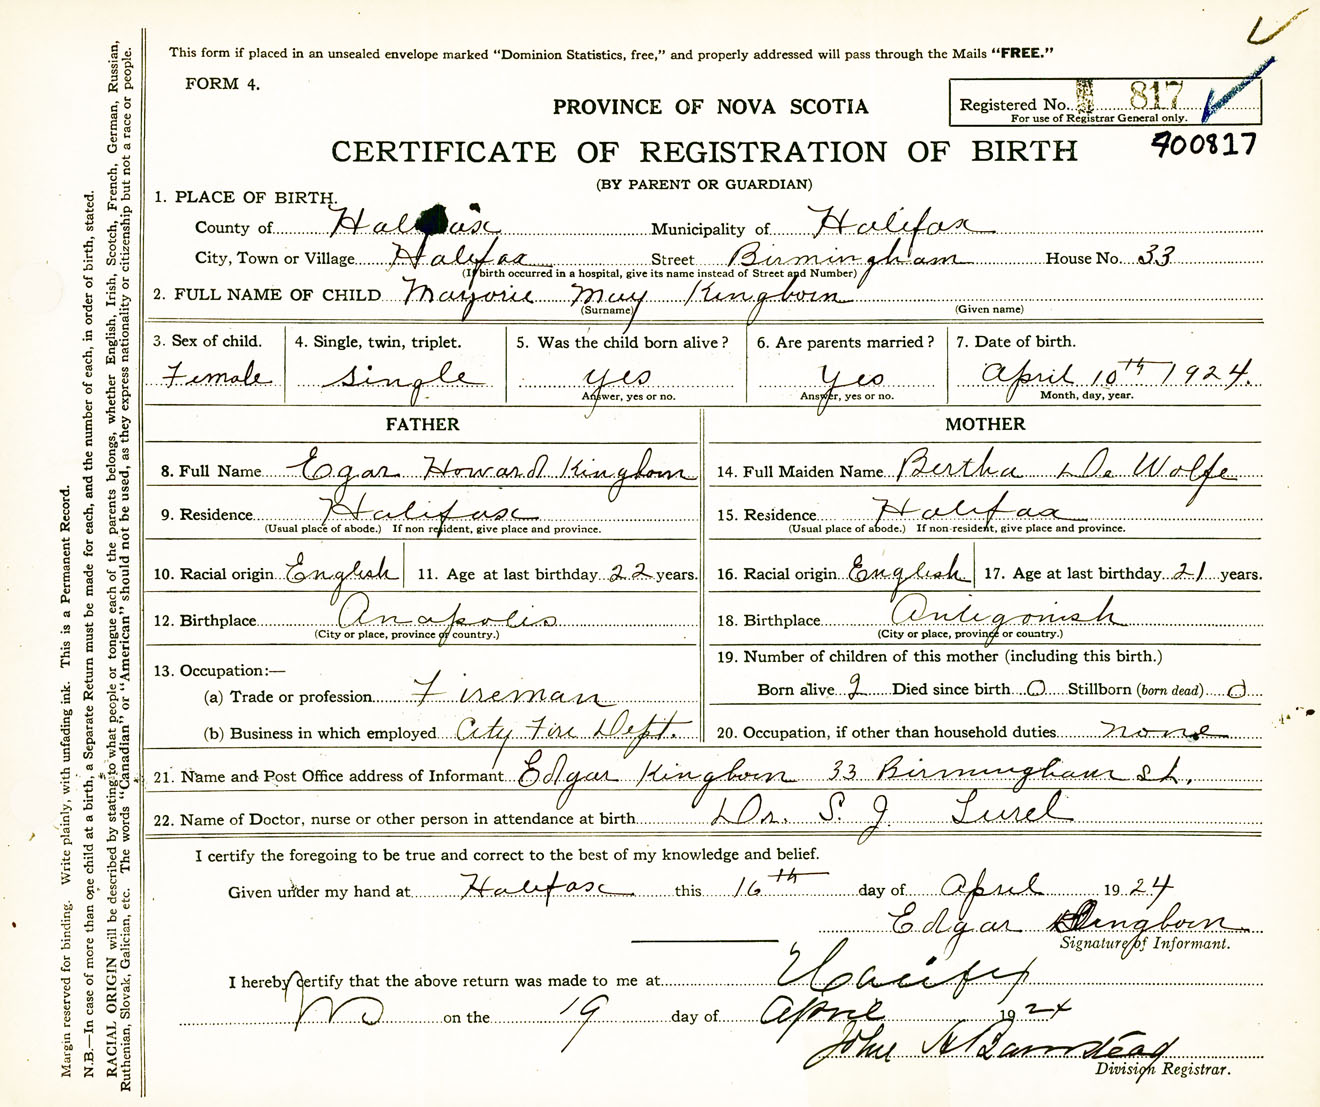 This form if placed in an unsealed envelope marked "Dominion Statistics, free," and properly addressed will pass through the Mails "FREE."
FORM 4.
PROVINCE OF NOVA SCOTIA
Registered No. 817
For use of Registrar General only.
CERTIFICATE OF REGISTRATION OF BIRTH
700817
(BY PARENT OR GUARDIAN)
1. PLACE OF BIRTH.
County of Halifax Municipality of Halifax
City, Town or Village Halifax Street Birmingham House No. 33
(If birth occurred in a hospital, give its name instead of Street and Number)
2. FULL NAME OF CHILD Marjorie May Kingborn
(Surname) (Given name)
3. Sex of child. 4. Single, twin, triplet. 5. Was the child born alive? 6. Are parents married? 7. Date of birth.
Female single yes Yes April 10th 1924.
Answer, yes or no. Answer, yes or no. Month, day, year.
FATHER MOTHER
8. Full Name Egar Howard Kingborn 14. Full Maiden Name Bertha De Wolfe
9. Residence Halifax 15. Residence Halifax
(Usual place of abode.) If non resident, give place and province. (Usual place of abode.) If non-resident, give place and province.
10. Racial origin English 11. Age at last birthday 22 years. 16. Racial origin English 17. Age at last birthday 21 years.
12. Birthplace Anapolis 18. Birthplace Antigonish
(City or place, province or country.) (City or place, province or country.)
13. Occupation:— 19. Number of children of this mother (including this birth.)
(a) Trade or profession Fireman Born alive 2 Died since birth 0 Stillborn (born dead) 0
(b) Business in which employed City Fire Dept. 20. Occupation, if other than household duties none
21. Name and Post Office address of Informant Edgar Kingborn 33 Birmingham St.
22. Name of Doctor, nurse or other person in attendance at birth Dr. S. J.
I certify the foregoing to be true and correct to the best of my knowledge and belief.
Given under my hand at Halifax this 16th day of April 1924
Edgar Kingborn
Signature of Informant.
I hereby certify that the above return was made to me at Halifax
on the 19 day of April 1924
John A Barnstead
Division Registrar.
Margin reserved for binding. Write plainly, with unfading ink. This is a Permanent Record.
N.B.—In case of more than one child at a birth, a Separate Return must be made for each, and the number of each, in order of birth, stated.
RACIAL ORIGIN will be described by stating to what people or tongue each of the parents belongs, whether English, Irish, Scotch, French, German, Russian,
Ruthenian, Slovak, Galician, etc. The words "Canadian" or "American" should not be used, as they express nationality or citizenship but not a race or people.